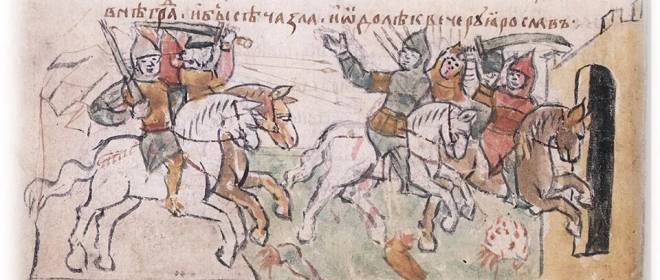 внѣ гра҃ . и бы́ сѣча зла . и ѡдолѣ к вечеру ꙗрославъ .